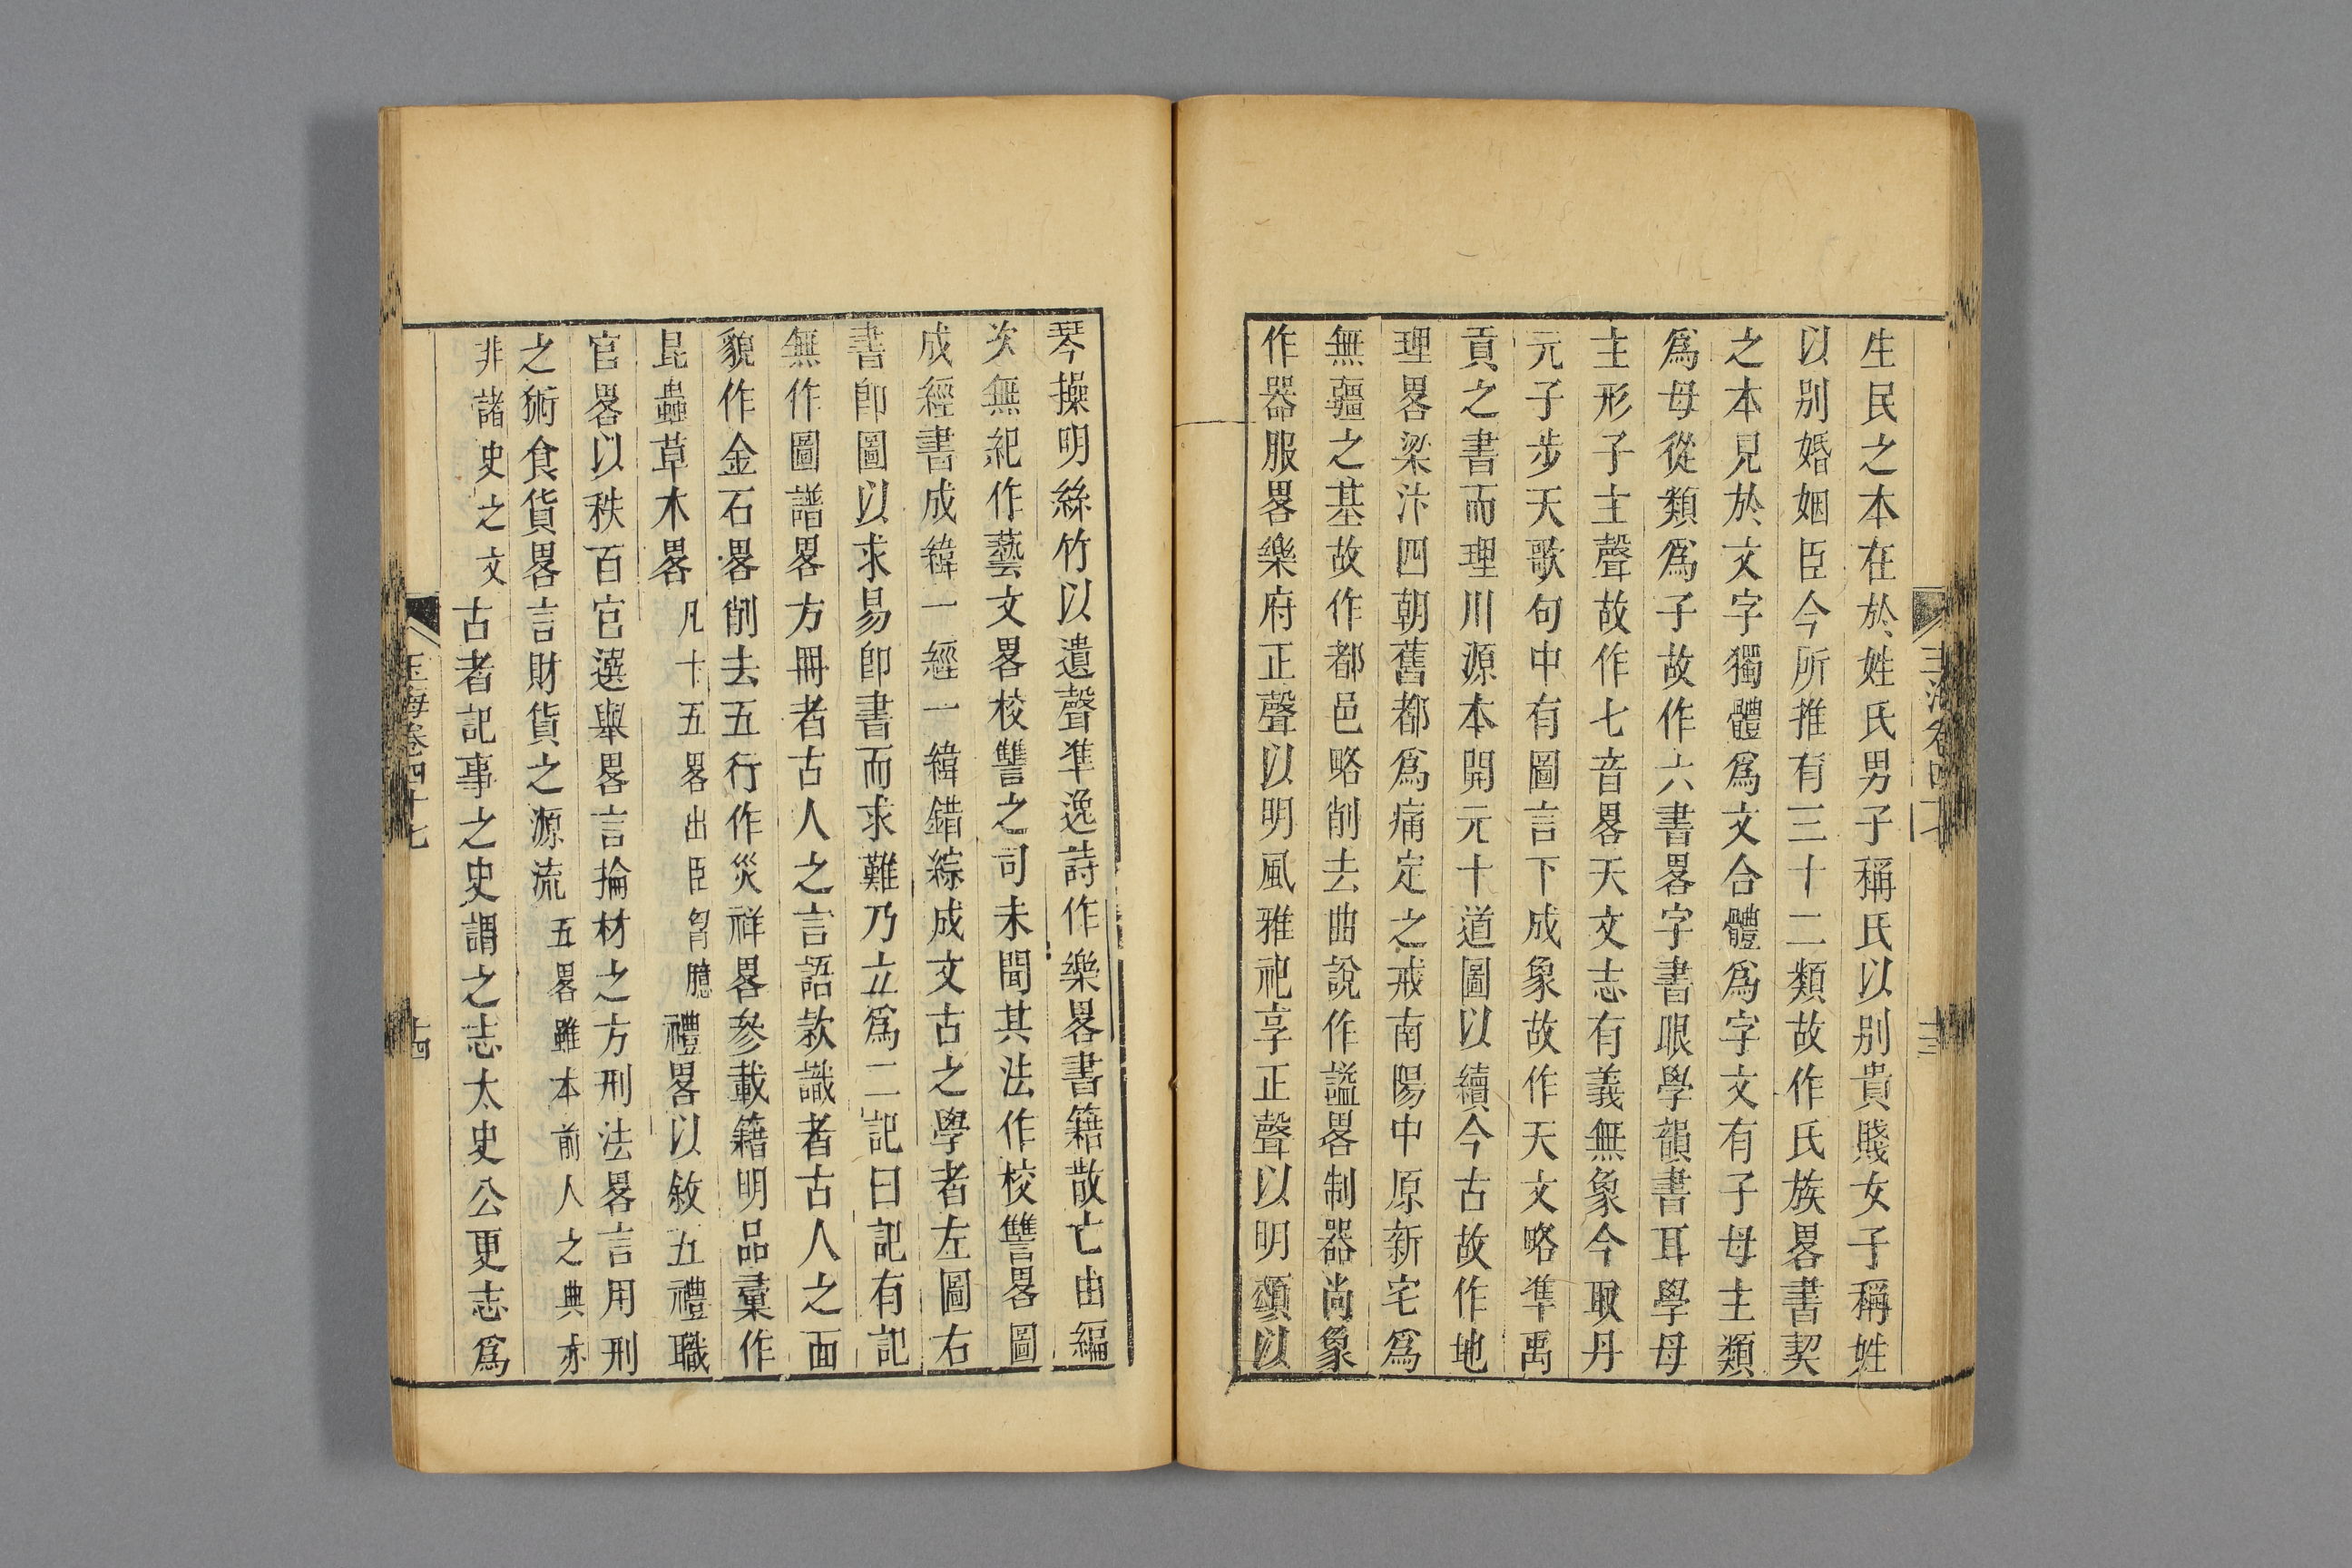 生民之本在於姓氏男子稱氏以别貴賤女子稱姓
以别婚姻臣今所推有三十二類故作氏族畧書契
之本見於文字獨體爲文合體爲字文有子母主類
爲母從類爲子故作六書畧字書眼學韻書耳學母
主形子主聲故作七音畧天文志有義無象今取丹
元子步天歌句中有圖言下成象故作天文略準禹
貢之書而理川源本開元十道圖以續今古故作地
理畧梁汴四朝舊都爲痛定之戒南陽中原新宅爲
無疆之基故作都邑略削去曲說作謚畧制器尚象
作器服畧樂府正聲以明風雅祀享正聲以明頌以
琴操明絲竹以遺聲準逸詩作樂畧書籍散亡由編
次無紀作藝文畧校讐之司未聞其法作校讐畧圖
成經書成緯一經一緯錯綜成文古之學者左圖右
書卽圖以求易卽書而求難乃立爲二記曰記有記
無作圖譜畧方冊者古人之言語款識者古人之面
貌作金石畧削去五行作災祥畧參載籍明品彙作
昆蟲草木畧凡十五畧出臣胷臆禮畧以敘五禮職
官畧以秩百官選舉畧言掄材之方刑法畧言用刑
之術食貨畧言財貨之源流五畧雖本前人之典亦
非諸史之文古者記事之史謂之志太史公更志爲
玉海卷四十七
十四